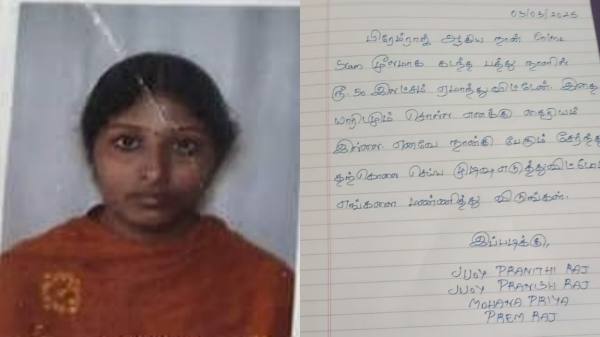 03/03/2025
பிரேம்ராஜ் ஆகிய நான் Online
Scam மூலமாக கடந்த பத்து நாளில்
ரூ. 50 இலட்சம் ஏமாந்து விட்டேன். இதை
யாரிடமும் சொல்ல எனக்கு தைரியம்
இல்லை. எனவே நான்கு பேரும் சேர்ந்து
தற்கொலை செய்ய முடிவு எடுத்துவிட்டோம்
எங்களை மன்னித்து விடுங்கள்.
இப்படிக்கு,
PRANITHI RAJ
PRANISH RAJ
MOHANA PRIYA
PREM RAJ